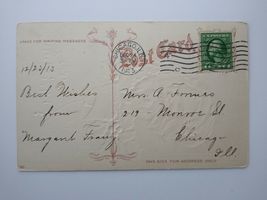 SPACE FOR WRITING MESSAGES
Post Card
12/23/13
Best Wishes
from
Margaret
Mrs. A
219 - Monroe St
Chicago
Ill.
THIS SIDE FOR ADDRESS ONLY